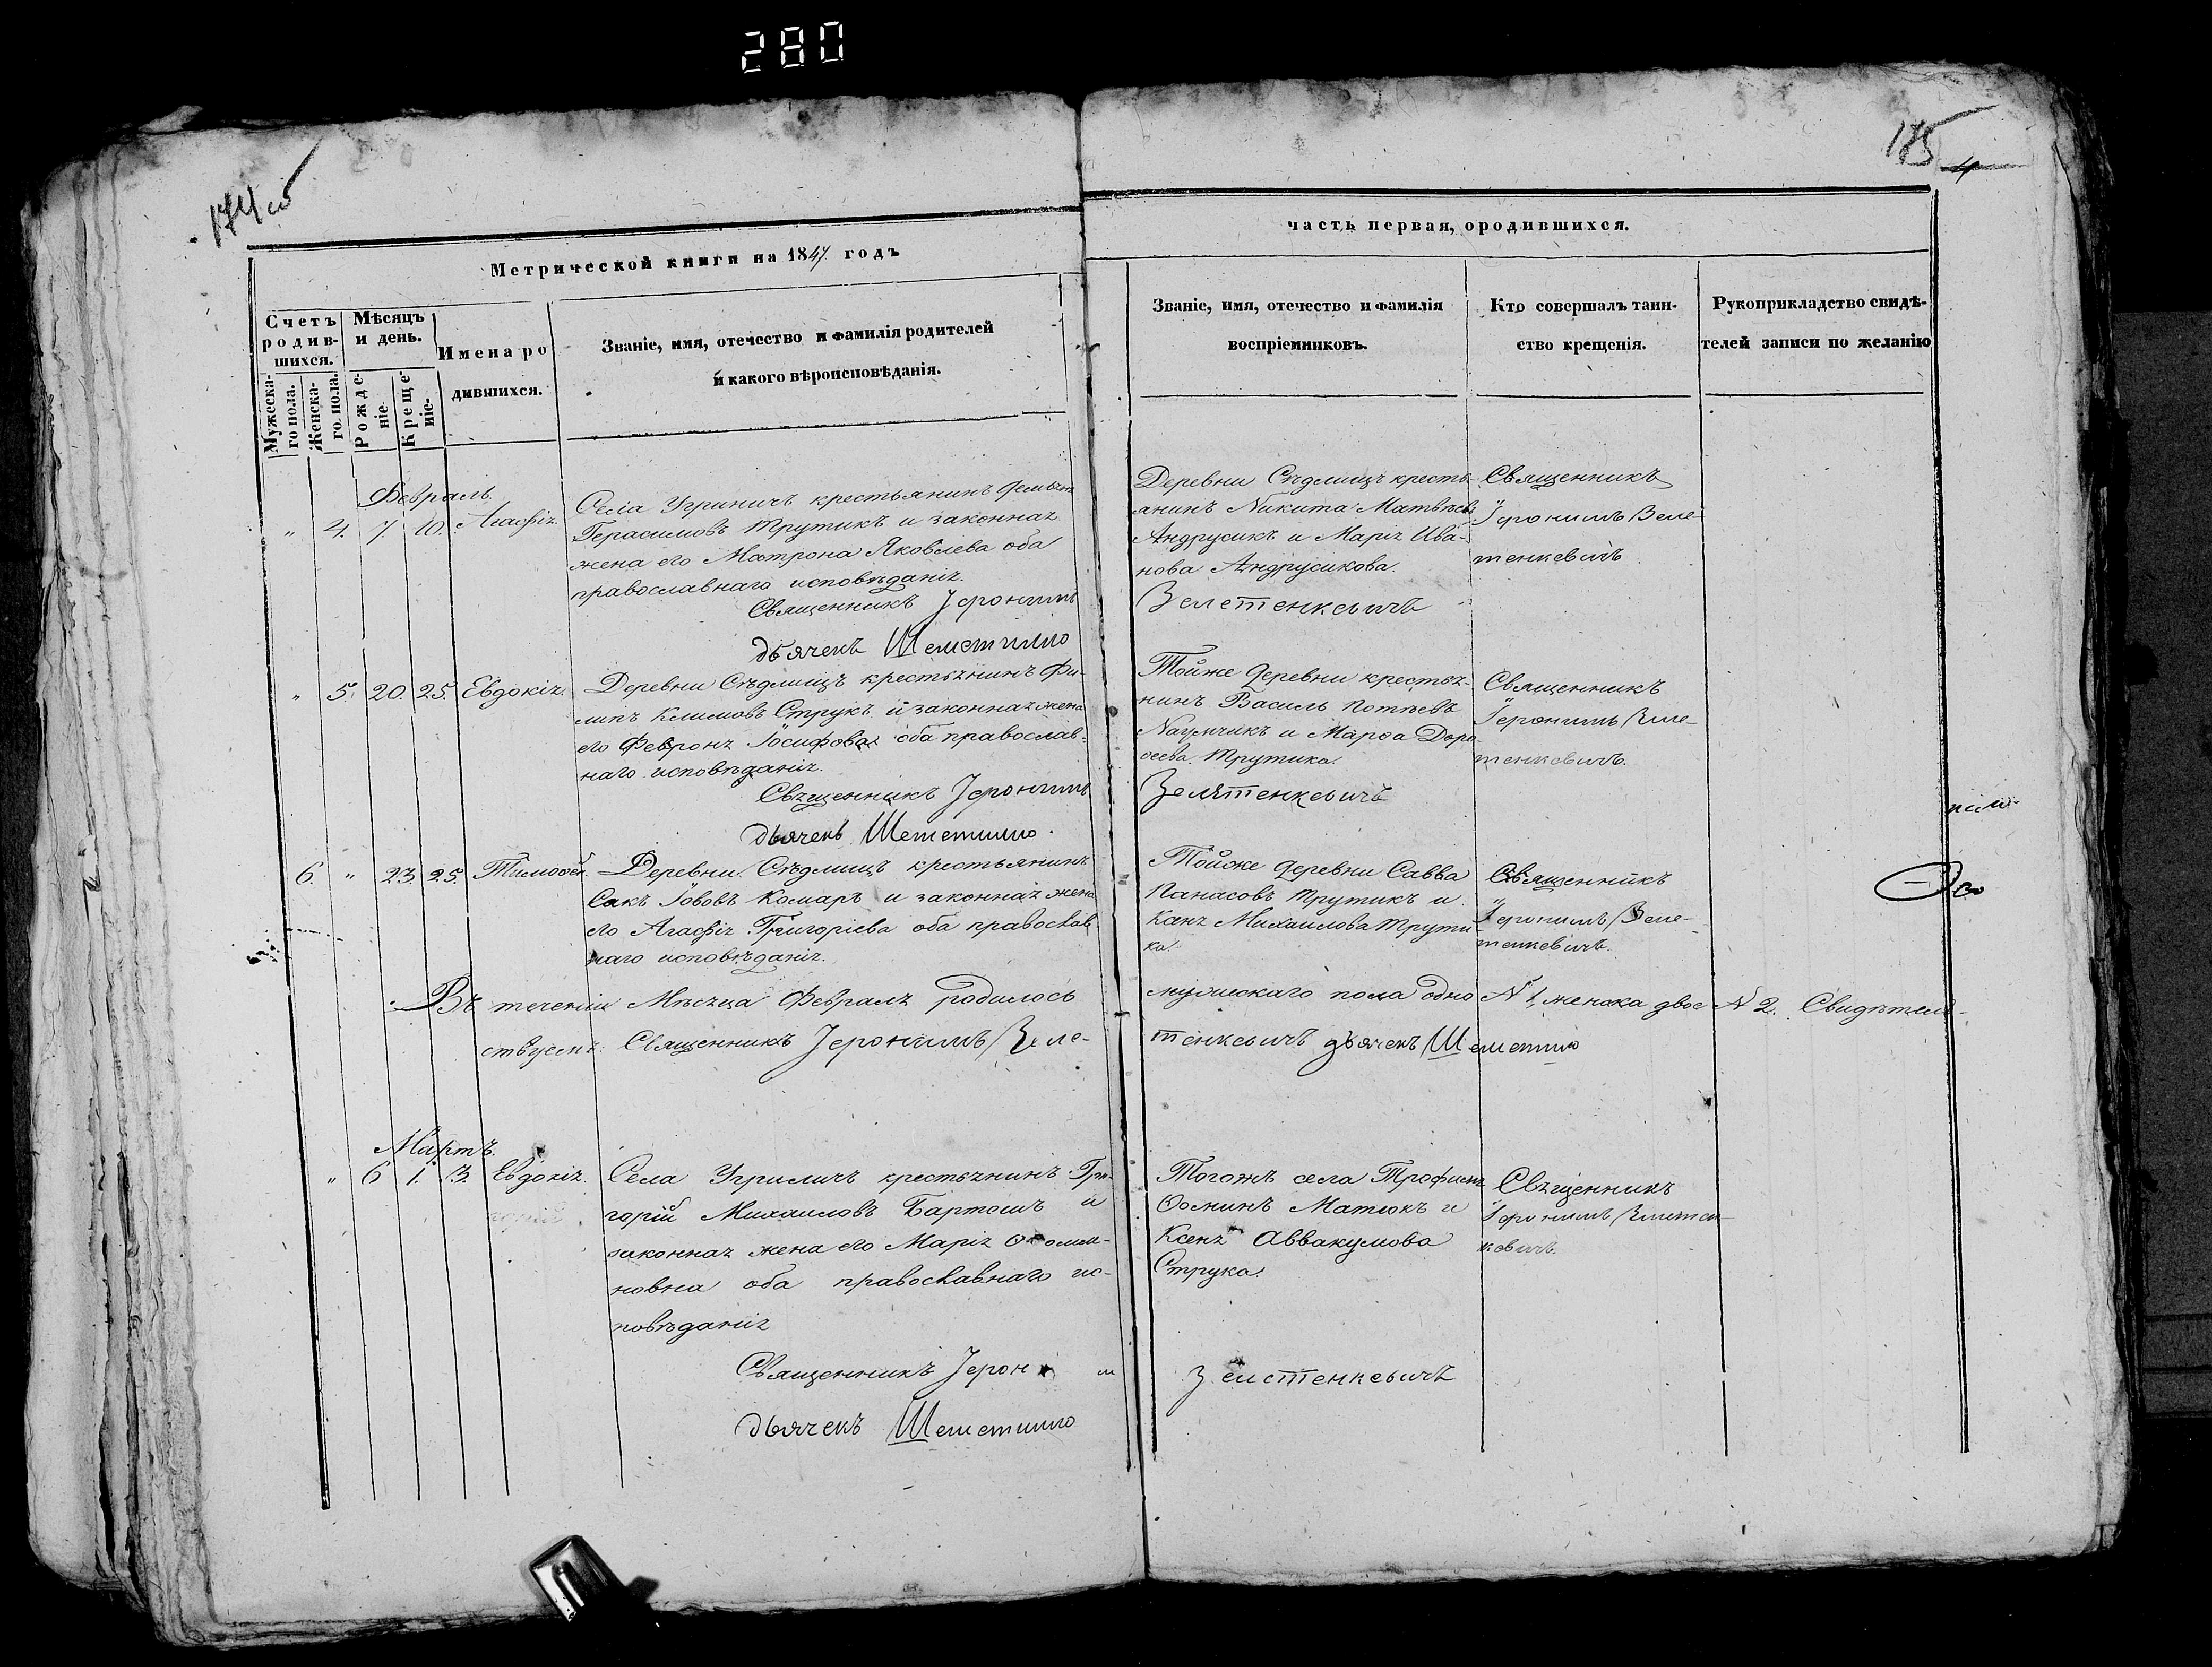 280
174 об
185
4
Метрической книги на 1847 годъ
часть первая, ородившихся.
Счетъ родившихся.
Мужескаго пола.
Женскаго пола.
Мѣсяцъ и день.
Рожденіе
Крещеніе
Имена родившихся.
Званіе, имя, отечество и фамилія родителей
и какого вѣроисповѣданія.
Званіе, имя, отечество и фамилія
воспріемниковъ.
Кто совершалъ таин-
ство крещенія.
Рукоприкладство свидѣ-
телей записи по желанію
Февраль.
" 4. 7. 10. Агафія.
Села Угриничъ крестьянинъ
Герасимовъ Трутикъ и законная
жена его Матрона Яковлева оба
православнаго исповѣданія.
Священникъ Іеронимъ
дьячекъ Шеметилло
Деревни Сѣдлищъ кресть-
янинъ Никита Матвѣевъ
Андрусикъ и Марія Ива-
нова Андрусикова.
Зелетенкевичъ
Священникъ
Іеронимъ Зеле-
тенкевичъ
" 5. 20. 25. Евдокія.
Деревни Сѣдлищъ крестьянинъ Фи-
липъ Климовъ Струкъ и законная жена
его Февронія Іосифова оба православ-
наго исповѣданія.
Священникъ Іеронимъ
дьячекъ Шеметилло.
Тойже деревни крестья-
нинъ Василь
Наумчикъ и Марѳа Доро-
ѳеева Трутика.
Зелетенкевичъ
Священникъ
Іеронимъ Зеле-
тенкевичъ.
6. " 23. 25. Тимоѳей.
Деревни Сѣдлищъ крестьянинъ
Сакъ Іововъ Комаръ и законная жена
его Агафія Григоріева оба православ-
наго исповѣданія.
Тойже деревни Савва
Панасовъ Трутикъ и
Михаилова Трути-
ка.
Священникъ
Іеронимъ Зеле-
тенкевичъ.
Въ теченіи Мѣсяца Февраля родилось мужескаго пола одно N 1, женска двое N 2. Свидѣтель-
ствуемъ: Священникъ Іеронимъ Зеле-тенкевичъ дьячекъ Шеметилло
Мартъ.
" 6 1. 3. Евдокія.
Села Угриничъ крестьянинъ Гри-
горій Михаиловъ Бартошъ и
законная жена его Марія
новна оба православнаго ис-
повѣданія
Священникъ Іероним
дьячекъ Шеметилло
Тогожъ села Трофимъ
Ѳоминъ Матюкъ и
Ксенія Аввакумова
Струка.
Зелетенкевичъ
Священникъ
Іеронимъ Зелетен-
кевичъ.